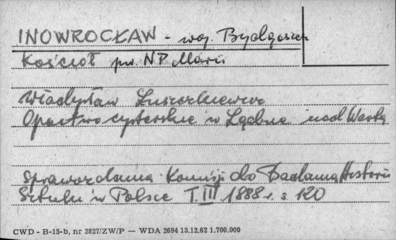 INOWROCŁAW - woj. Bydgoszcz
Kościół pw. NP. Marii
Władysław Łuszczkiewicz
Opactwo cysterskie w Lądzie nad Wartą
Sprawozdania Komisji do Badania Historii
Sztuki w Polsce T. III 1888 r. s. 120
CWD - B-15-b, nr 2827/ZW/P — WDA 2694 13.12.62 1.700.000